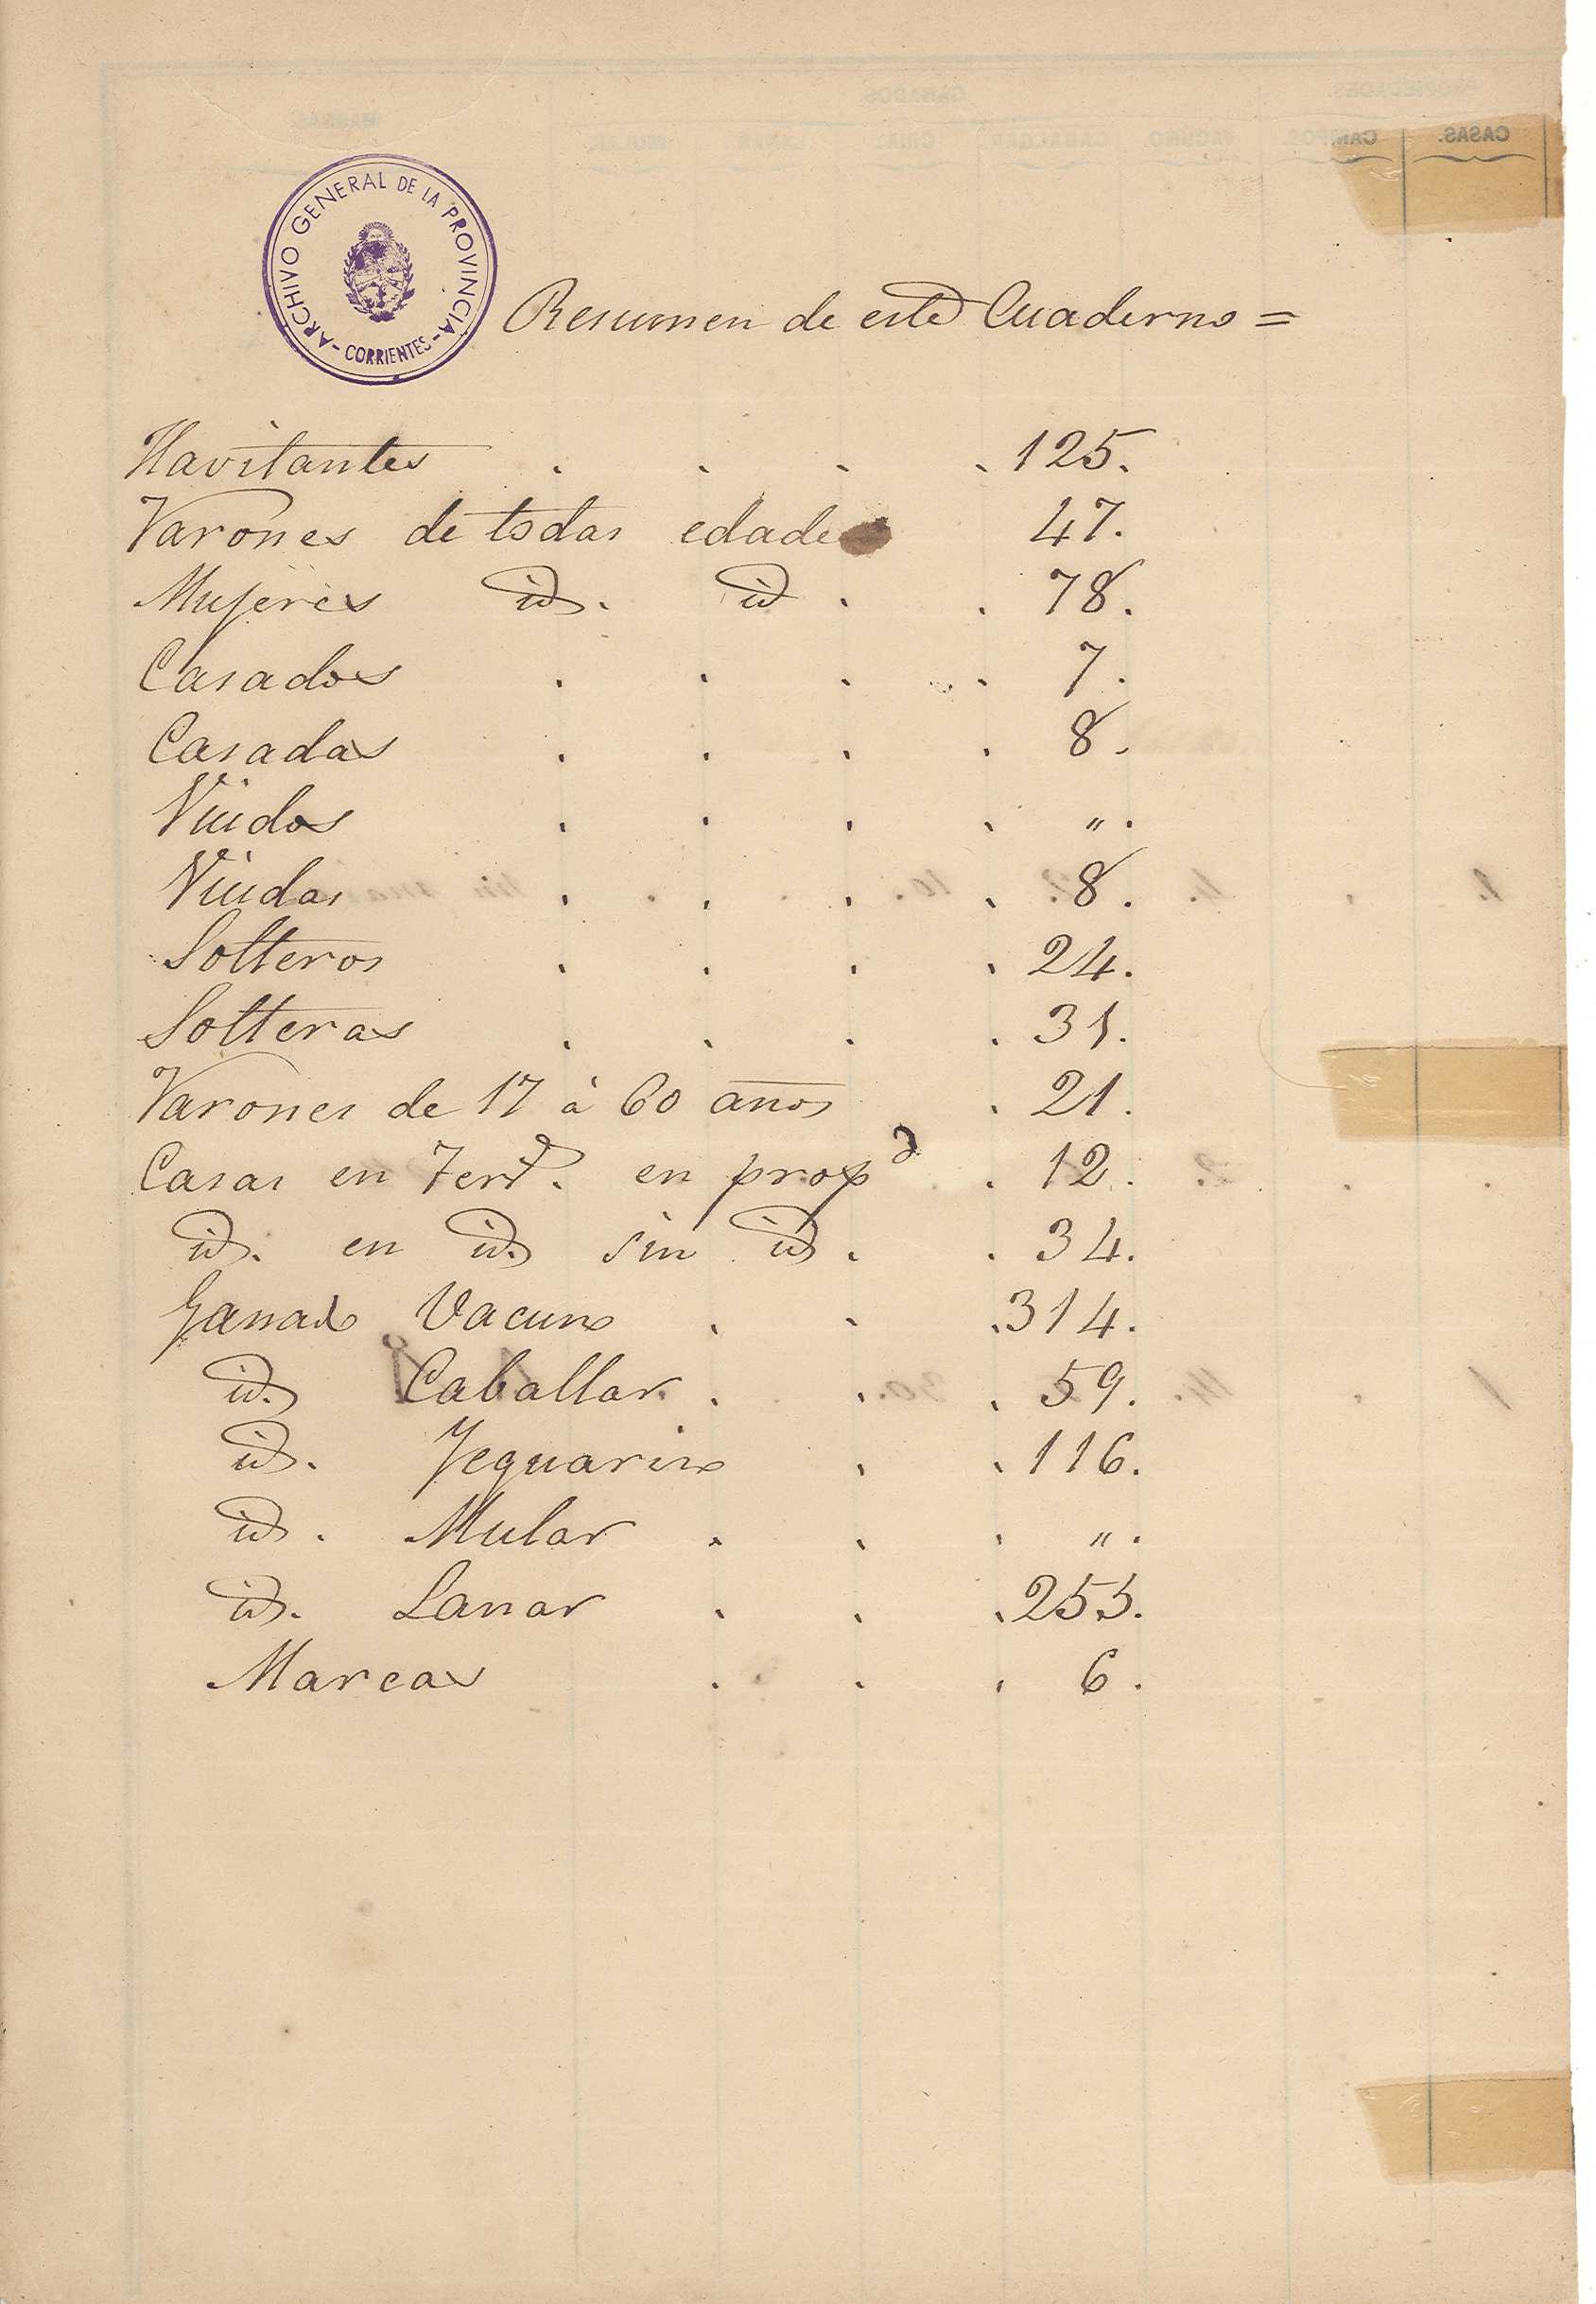 ARCHIVO GENERAL DE LA PROVINCIA
- CORRIENTES -
Resumen de este Cuaderno =
Havitantes . . . . 125.
Varones de todas edades 47.
Mujeres id. id . . 78.
Casados . . . . 7.
Casadas . . . . 8.
Viudos . . . . " .
Viudas . . . . 8.
Solteros . . . . 24.
Solteras . . . . 31.
Varones de 17 à 60 años . 21.
Casas en Terr.º en propd . 12.
id. en id. sin id . . 34.
Ganado Vacuno . . . 314.
id. Caballar . . . 59.
id. Yeguarizo . . 116.
id. Mular . . . " .
id. Lanar . . . 255.
Marcas . . . 6.